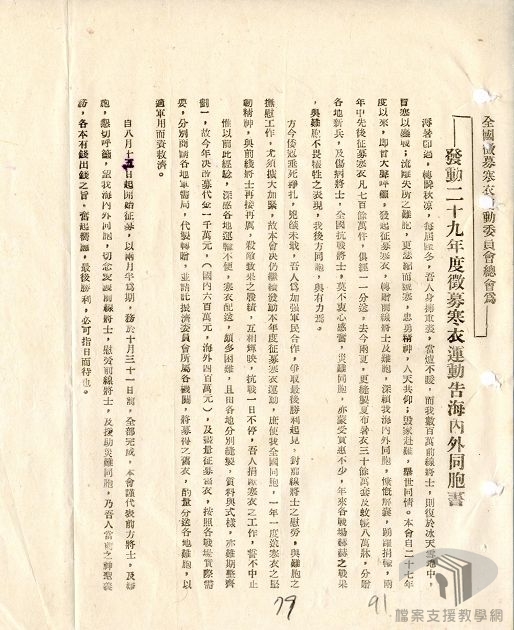 全國徵募寒衣運動委員會總會為
發動二十九年度徵募寒衣運動告海內外同胞書
溽暑即過，轉瞬秋涼，每屆隆冬，吾人身擁重裘，當爐不暖，而我數百萬前線將士，則復於冰天雪地中，
冒寒以鏖戰；流離失所之難胞，更悲痛而號寒，忠勇精神，人天共仰；毀家赴難，舉世同情。本會自二十七年
度以來，即首大聲呼籲，發起征募寒衣，轉贈前線將士及難胞，深賴我海內外同胞，慷慨解囊，踴躍捐輸，兩
年中先後征募寒衣凡七百餘萬件，俱經一一分送，去今兩夏，更縫製夏布暑衣三十餘萬套及蚊帳八萬牀，分贈
各地新兵，及傷病將士，全國抗戰將士，莫不衷心感奮，災難同胞，亦蒙受實惠不少，年來各戰場赫赫之戰果
，與難胞不畏犧牲之表現，我後方同胞，與有力焉。
方今倭寇垂死掙扎，兇燄未戢，吾人為加強軍民合作，爭取最後勝利起見，對前線將士之慰勞，與難胞之
撫慰工作，尤須擴大加緊，故本會決仍繼續發動本年度征募寒衣運動，庶使我全國同胞，一年一度送寒衣之區
區精神，與前線將士再接再厲，殺敵致果之戰績，互相輝映，抗戰一日不停，吾人捐獻寒衣之工作，誓不中止
惟以前此經驗，深感各地運輸不便，寒衣配送，頗多困難，且由各地分別縫製，質料與式樣，亦難期整齊
劃一，故今年決改募代金一千萬元，（國內六百萬元，海外四百萬元），及儘量征募舊衣，按照各戰場實際需
要，分別商請各地軍需局，代製轉贈，並請託振濟委員會所屬各機關，將募得之舊衣，酌量分送各地難胞，以
適軍用而資救濟。
自八月十五日起開始征募，以兩月半為期，務於十月三十一日前，全部完成，本會謹代表前方將士，及難
胞，懇切呼籲，望我海內外同胞，切念愛護前線將士，慰勞前線將士，及援助災難同胞，乃吾人當前之神聖義
務，各本有錢出錢之旨，奮起響應，最後勝利，必可指日而待也。
79
91
檔案支援教學網